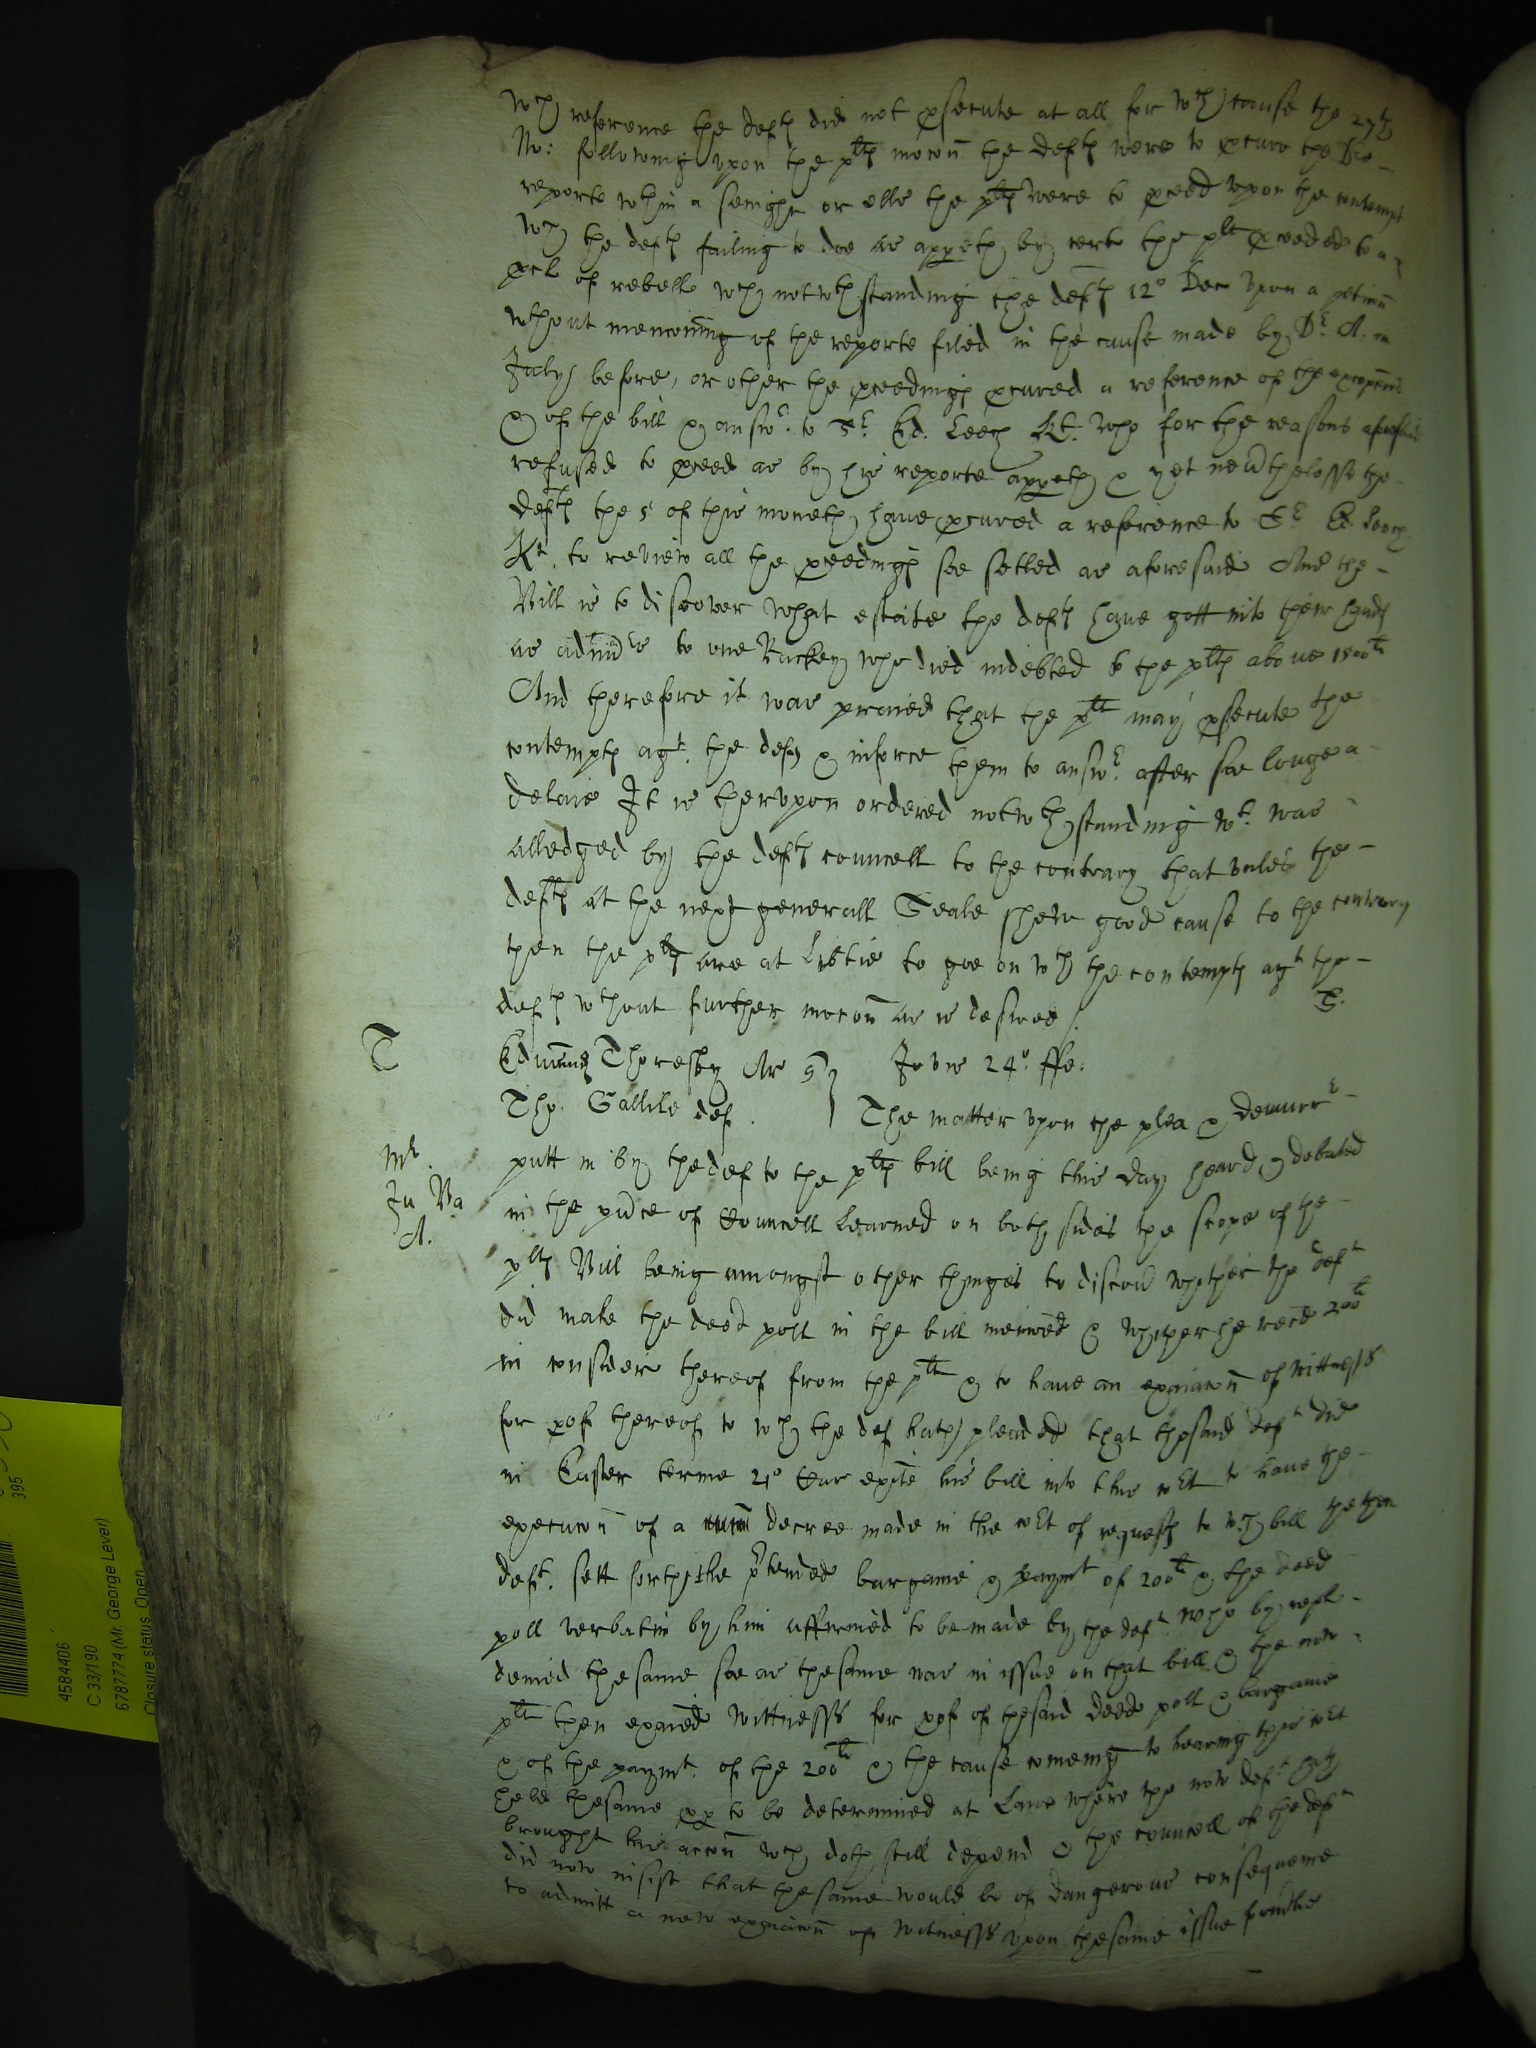 wch reference the defts did not psecute at all for wch cause the 27th
No: following upon the plts mocon the defts were to pcure the Drs
reporte wthin a senight or els the plts were to pceed upon the contempt
wch the defts failing to doe as appeth by certe the plt pceeded to a
pcl of rebell wch notwthstanding the defts 12o Dec upon a peticon
wthout menconing of the reporte filed in the cause made by Dr. A. in
July before, or other the pceedings pcured a reference of the excepcons
& of the bill & answr. to Sr. Ed. Leech Kt. who for the reasons aforesaid
refused to pceed as by his reporte appeth & yet nevthelesse the
defts the 5 of this moneth have pcured a reference to Sr. Ed. Leech
Kt. to review all the pceedings soe setled as aforesaid And the
Bill is to discover what estate the defts have gott into their hands
as admrs to one Rackey who died indebted to the plts above 1500li
And therefore it was praied that the plt may psecute the
contempts agt. the defts & inforce them to answr. after soe longe a
delaie It is therupon ordered notwthstanding wt. was
alledged by the defts councell to the contrary that unles the
defts at the next generall Seale shew good cause to the contrary
then the plts are at libtie to goe on wth the contempts agt the
defts wthout further mocon as is desired /
T
Edmund Thoresby Ar q } Jovis 24o. ffe:
Tho. Gallile def.
The matter upon the plea & demurrr
Mr.
Ju Va
A.
putt in by the def to the plts bill being this day heard & debated
in the pnce of Councell learned on both sides the scope of the
plts Bill being amongst other thinges to discov whether the deft
did make the deed poll in the bill menconed & whether he reced 200li
in consideracon thereof from the plt & to have an exaiacon of wittnesses
for pof thereof to wch the def hath pleaded that the said deft did
in Easter terme 21o Car exite his bill into this cort to have the
execucon of a decree made in the cort of requests to wch bill the then
deft. sett forth the ptended bargaine & paymt of 200li & the deed
poll verbatim by him affirmed to be made by the deft who by repl
denied the same soe as the same was in issue on that bill & the now
plt then exaied wittnesses for pof of the said deed poll & bargaine
& of the paymt. of the 200li & the cause comeing to hearing this cort
held the same pp to be determined at Lawe where the now deft hath
brought his accon wch doth still depend & the councell of the deft
did now insist that the same would be of dangerous consequence
to admitt a new exaiacon of witnesses upon the same issue
4584406
C 33/190
6787774 (Mr. George Lever)
Closure status: Open
395